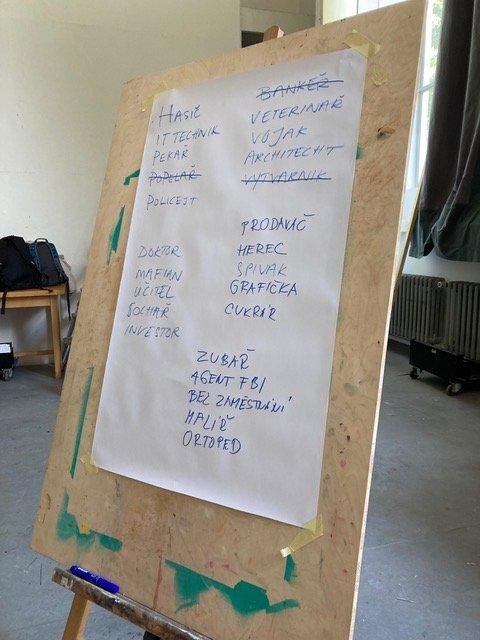 HASIČ
IT TECHNIK
PEKAŘ
POPELAŘ
POLICEJT
BANKÉŘ
VETERINAŘ
VOJAK
ARCHITECHT
VÝTVARNIK
DOKTOR
MAFIAN
UČITEL
SOCHAŘ
INVESTOR
PRODAVAČ
HEREC
SPIVAK
GRAFIČKA
CUKRÁŘ
ZUBAŘ
AGENT FBI
BEZ ZAMĚSTNÁNÍ
MALÍŘ
ORTOPED